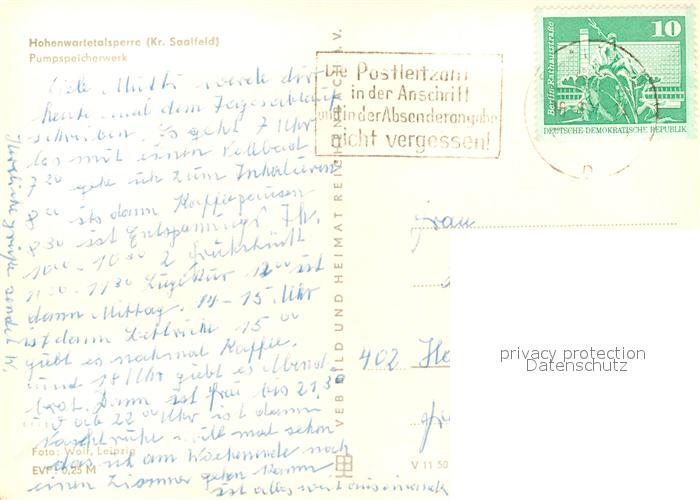 Hohenwartetalsperre (Kr. Saalfeld)
Pumpspeicherwerk
Liebe Mutti werde dir
heute mal dem Tagesablauf
schreiben. Es geht 7 Uhr
los mit einen
7 20 gehe ich zum Inhalieren
8 00 ists dann Kaffeepausen
8 30 ist Entspannungs Th.
10 00 - 10 30 2 Frühstück
11 00 - 11 30 12 00 ist
dann Mittag. 14 - 15 Uhr
ist dann 15 00
giebt es nochmal Kaffee.
und 18 Uhr giebt es Abend
brot. Dann ist frei bis 21,30
und ab 22 00 Uhr ist dann
Nachtruhe will mal sehen
das ich am Wochenende nach
einen Zimmer gehen kann
ist alles weit auseinander
Herzliche Grüße sendet W.
Foto: Wolf, Leipzig
EVP: 0,25 M
VEB BILD UND HEIMAT REICHENBACH I. V.
V 11 50
Die Postleitzahl
in der Anschrift
und in der Absenderangabe
nicht vergessen!
10
Berlin · Rathausstraße
DEUTSCHE DEMOKRATISCHE REPUBLIK
Frau
402
privacy protection
Datenschutz